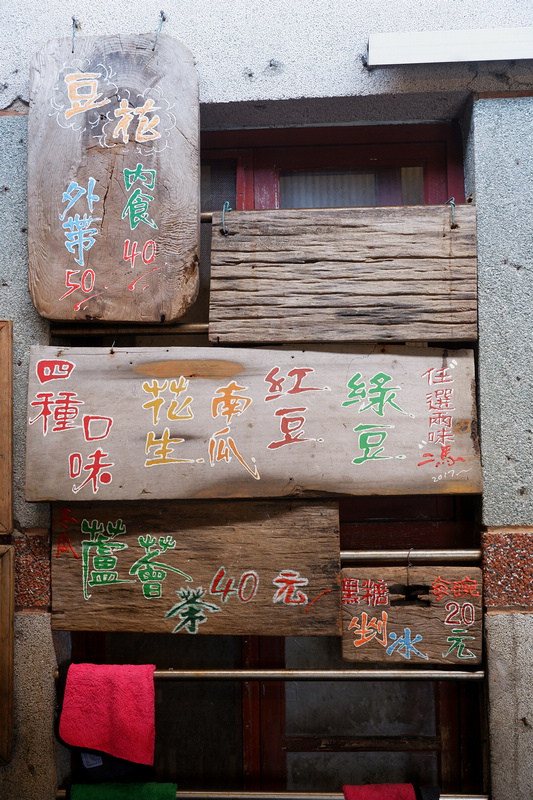 豆花
內食40
外帶50
四種口味
花生
南瓜
紅豆
綠豆
任選兩味
馮
2017
冬瓜
蘆薈茶40元
黑糖剉冰
20元